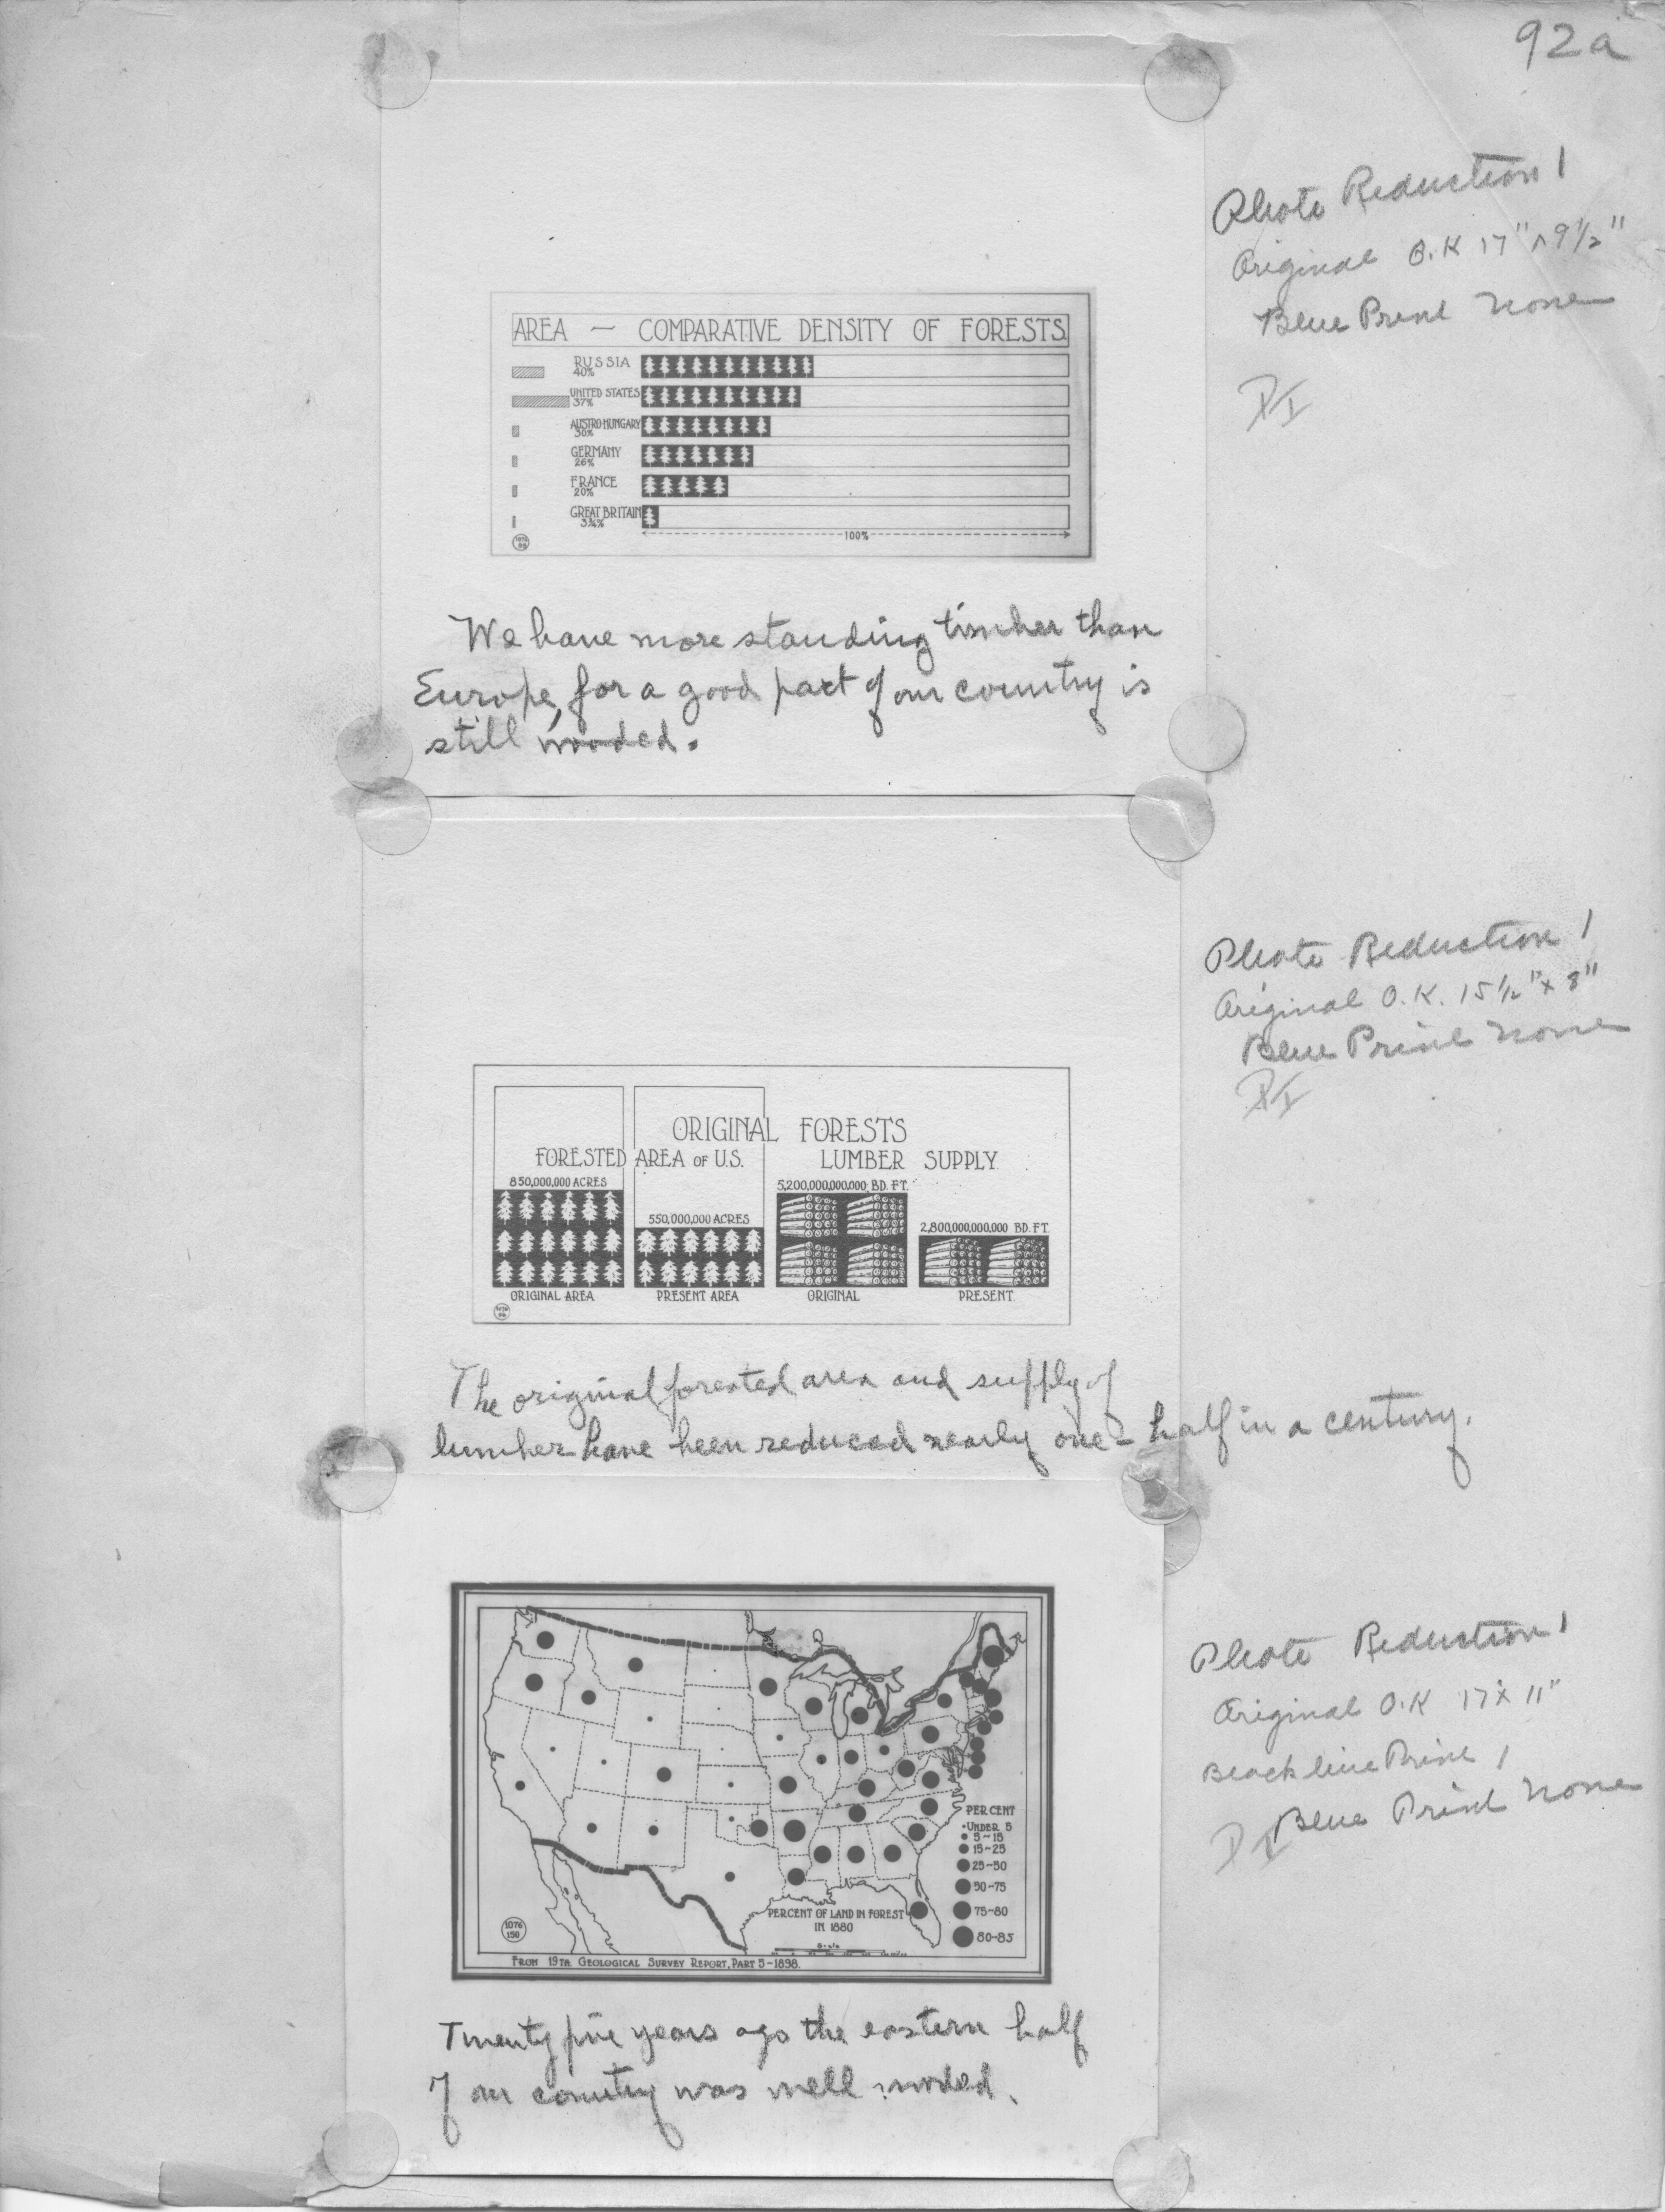 92a
Photo Reduction 1
Original O.K 17" x 9 1/2"
Blue Print none
AREA — COMPARATIVE DENSITY OF FORESTS
RUSSIA
40%
UNITED STATES
37%
AUSTRO-HUNGARY
30%
GERMANY
26%
FRANCE
20%
GREAT BRITAIN
3¾%
100%
We have more standing timber than
Europe, for a good part of our country is
still wooded.
Photo Reduction 1
Original O.K. 15 1/2" x 8"
Blue Print none
ORIGINAL FORESTS
FORESTED AREA OF U.S. LUMBER SUPPLY
850,000,000 ACRES
5,200,000,000,000 BD. FT.
550,000,000 ACRES
2,800,000,000,000 BD. FT.
ORIGINAL AREA PRESENT AREA ORIGINAL PRESENT
The original forested area and supply of
lumber have been reduced nearly one-half in a century.
Photo Reduction 1
Original O.K 17 x 11"
Black line Print 1
Blue Print none
PER CENT
UNDER 5
5-15
15-25
25-50
50-75
75-80
80-85
PERCENT OF LAND IN FOREST
IN 1880
Scale
1076
150
FROM 19TH. GEOLOGICAL SURVEY REPORT, PART 5-1898.
Twenty five years ago the eastern half
of our country was well wooded.